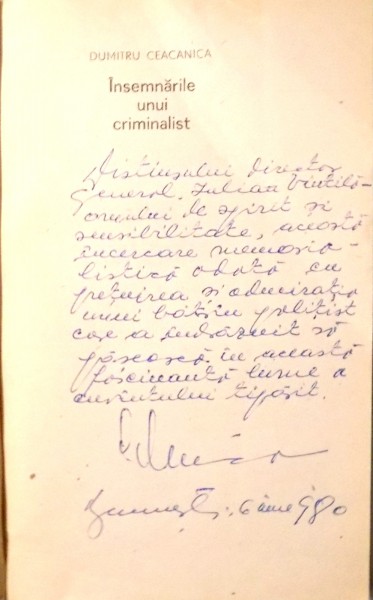 DUMITRU CEACANICA
Însemnările
unui
criminalist
Distinsului director
general, Iulian Vintilă –
omului de spirit și
sensibilitate, această
încercare memoria-
listică odată cu
prețuirea și admirația
unui bătrîn polițist
care a îndrăznit să
pășească în această
fascinantă lume a
cuvîntului tipărit.
București, 6 iunie 980